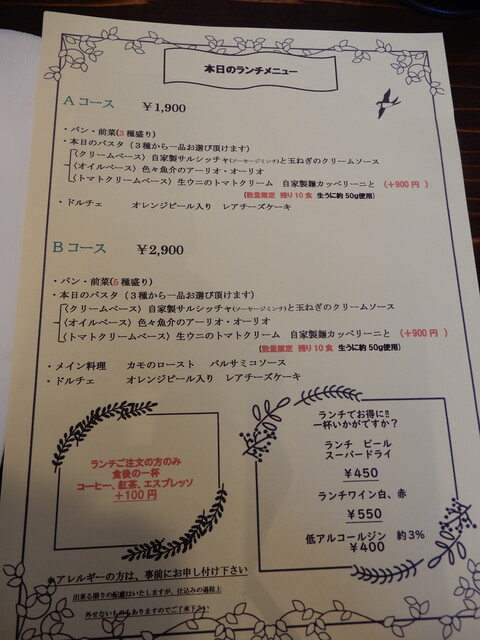 本日のランチメニュー
Aコース ￥1,900
・パン・前菜(3種盛り)
・本日のパスタ（3種から一品お選び頂けます）
〈クリームベース〉自家製サルシッチャ(ソーセージミンチ)と玉ねぎのクリームソース
〈オイルベース〉色々魚介のアーリオ・オーリオ
〈トマトクリームベース〉生ウニのトマトクリーム 自家製麺カッペリーニと（+900円）
(数量限定 残り10食 生うに約50g使用)
・ドルチェ オレンジピール入り レアチーズケーキ
Bコース ￥2,900
・パン・前菜(5種盛り)
・本日のパスタ（3種から一品お選び頂けます）
〈クリームベース〉自家製サルシッチャ(ソーセージミンチ)と玉ねぎのクリームソース
〈オイルベース〉色々魚介のアーリオ・オーリオ
〈トマトクリームベース〉生ウニのトマトクリーム 自家製麺カッペリーニと（+900円）
(数量限定 残り10食 生うに約50g使用)
・メイン料理 カモのロースト バルサミコソース
・ドルチェ オレンジピール入り レアチーズケーキ
ランチご注文の方のみ
食後の一杯
コーヒー、紅茶、エスプレッソ
+100円
ランチでお得に!!
一杯いかがですか？
ランチ ビール
スーパードライ
￥450
ランチワイン白、赤
￥550
低アルコールジン 約3%
￥400
*アレルギーの方は、事前にお申し付け下さい
出来る限りの配慮はいたしますが、仕込みの過程上
外せないものもありますのでご了承下さい